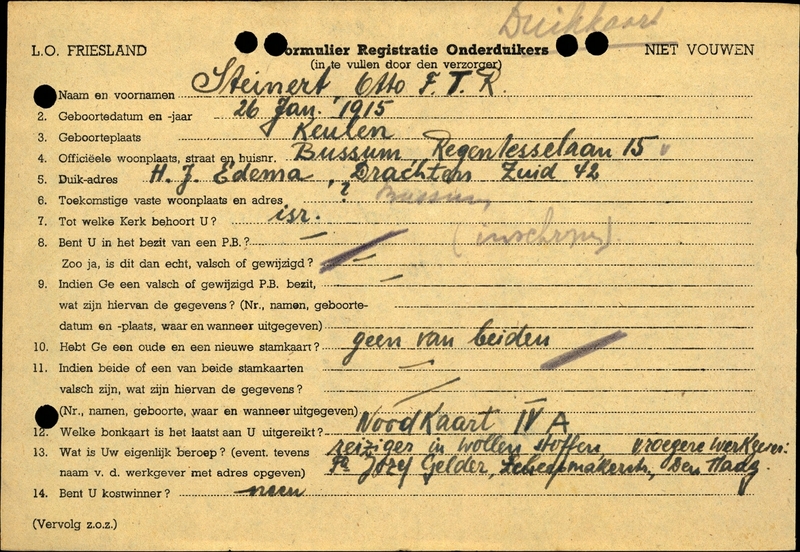 Duikkaart
L.O. FRIESLAND Formulier Registratie Onderduikers NIET VOUWEN
(in te vullen door den verzorger)
Naam en voornamen Steinert Otto F. T. R.
2. Geboortedatum en -jaar 26 Jan. 1915
3. Geboorteplaats Keulen
4. Officiëele woonplaats, straat en huisnr. Bussum Regentesselaan 15
5. Duik-adres H. J. Edema, Drachten Zuid 42
6. Toekomstige vaste woonplaats en adres ? Bussum,
7. Tot welke Kerk behoort U? isr. (inschrijv).
8. Bent U in het bezit van een P.B.? —
Zoo ja, is dit dan echt, valsch of gewijzigd? —
9. Indien Ge een valsch of gewijzigd P.B. bezit, —
wat zijn hiervan de gegevens? (Nr., namen, geboorte-
datum en -plaats, waar en wanneer uitgegeven)
10. Hebt Ge een oude en een nieuwe stamkaart? geen van beiden
11. Indien beide of een van beide stamkaarten —
valsch zijn, wat zijn hiervan de gegevens?
(Nr., namen, geboorte, waar en wanneer uitgegeven)
12. Welke bonkaart is het laatst aan U uitgereikt? Noodkaart IV A
13. Wat is Uw eigenlijk beroep? (event. tevens reiziger in wollen stoffen vroegere werkgever:
naam v. d. werkgever met adres opgeven) Fa Jozef Gelder, Scheepmakerstr., Den Haag.
14. Bent U kostwinner? neen
(Vervolg z.o.z.)